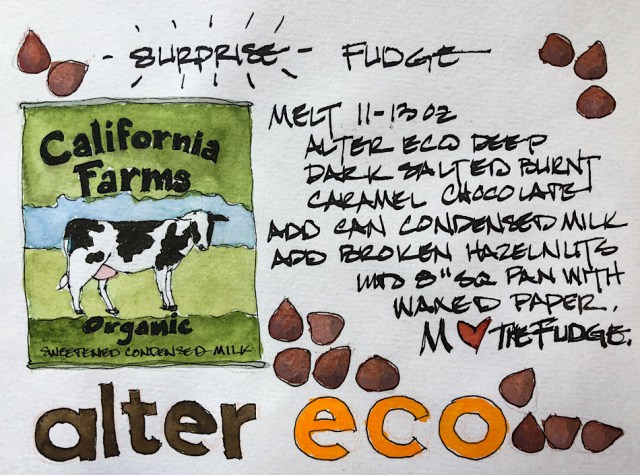 - SURPRISE - FUDGE
California
Farms
Organic
SWEETENED CONDENSED MILK
MELT 11-13 OZ
ALTER ECO DEEP
DARK SALTED BURNT
CARAMEL CHOCOLATE
ADD CAN CONDENSED MILK
ADD BROKEN HAZELNUTS
INTO 8" SQ PAN WITH
WAXED PAPER.
M ♥ THE FUDGE.
alter eco